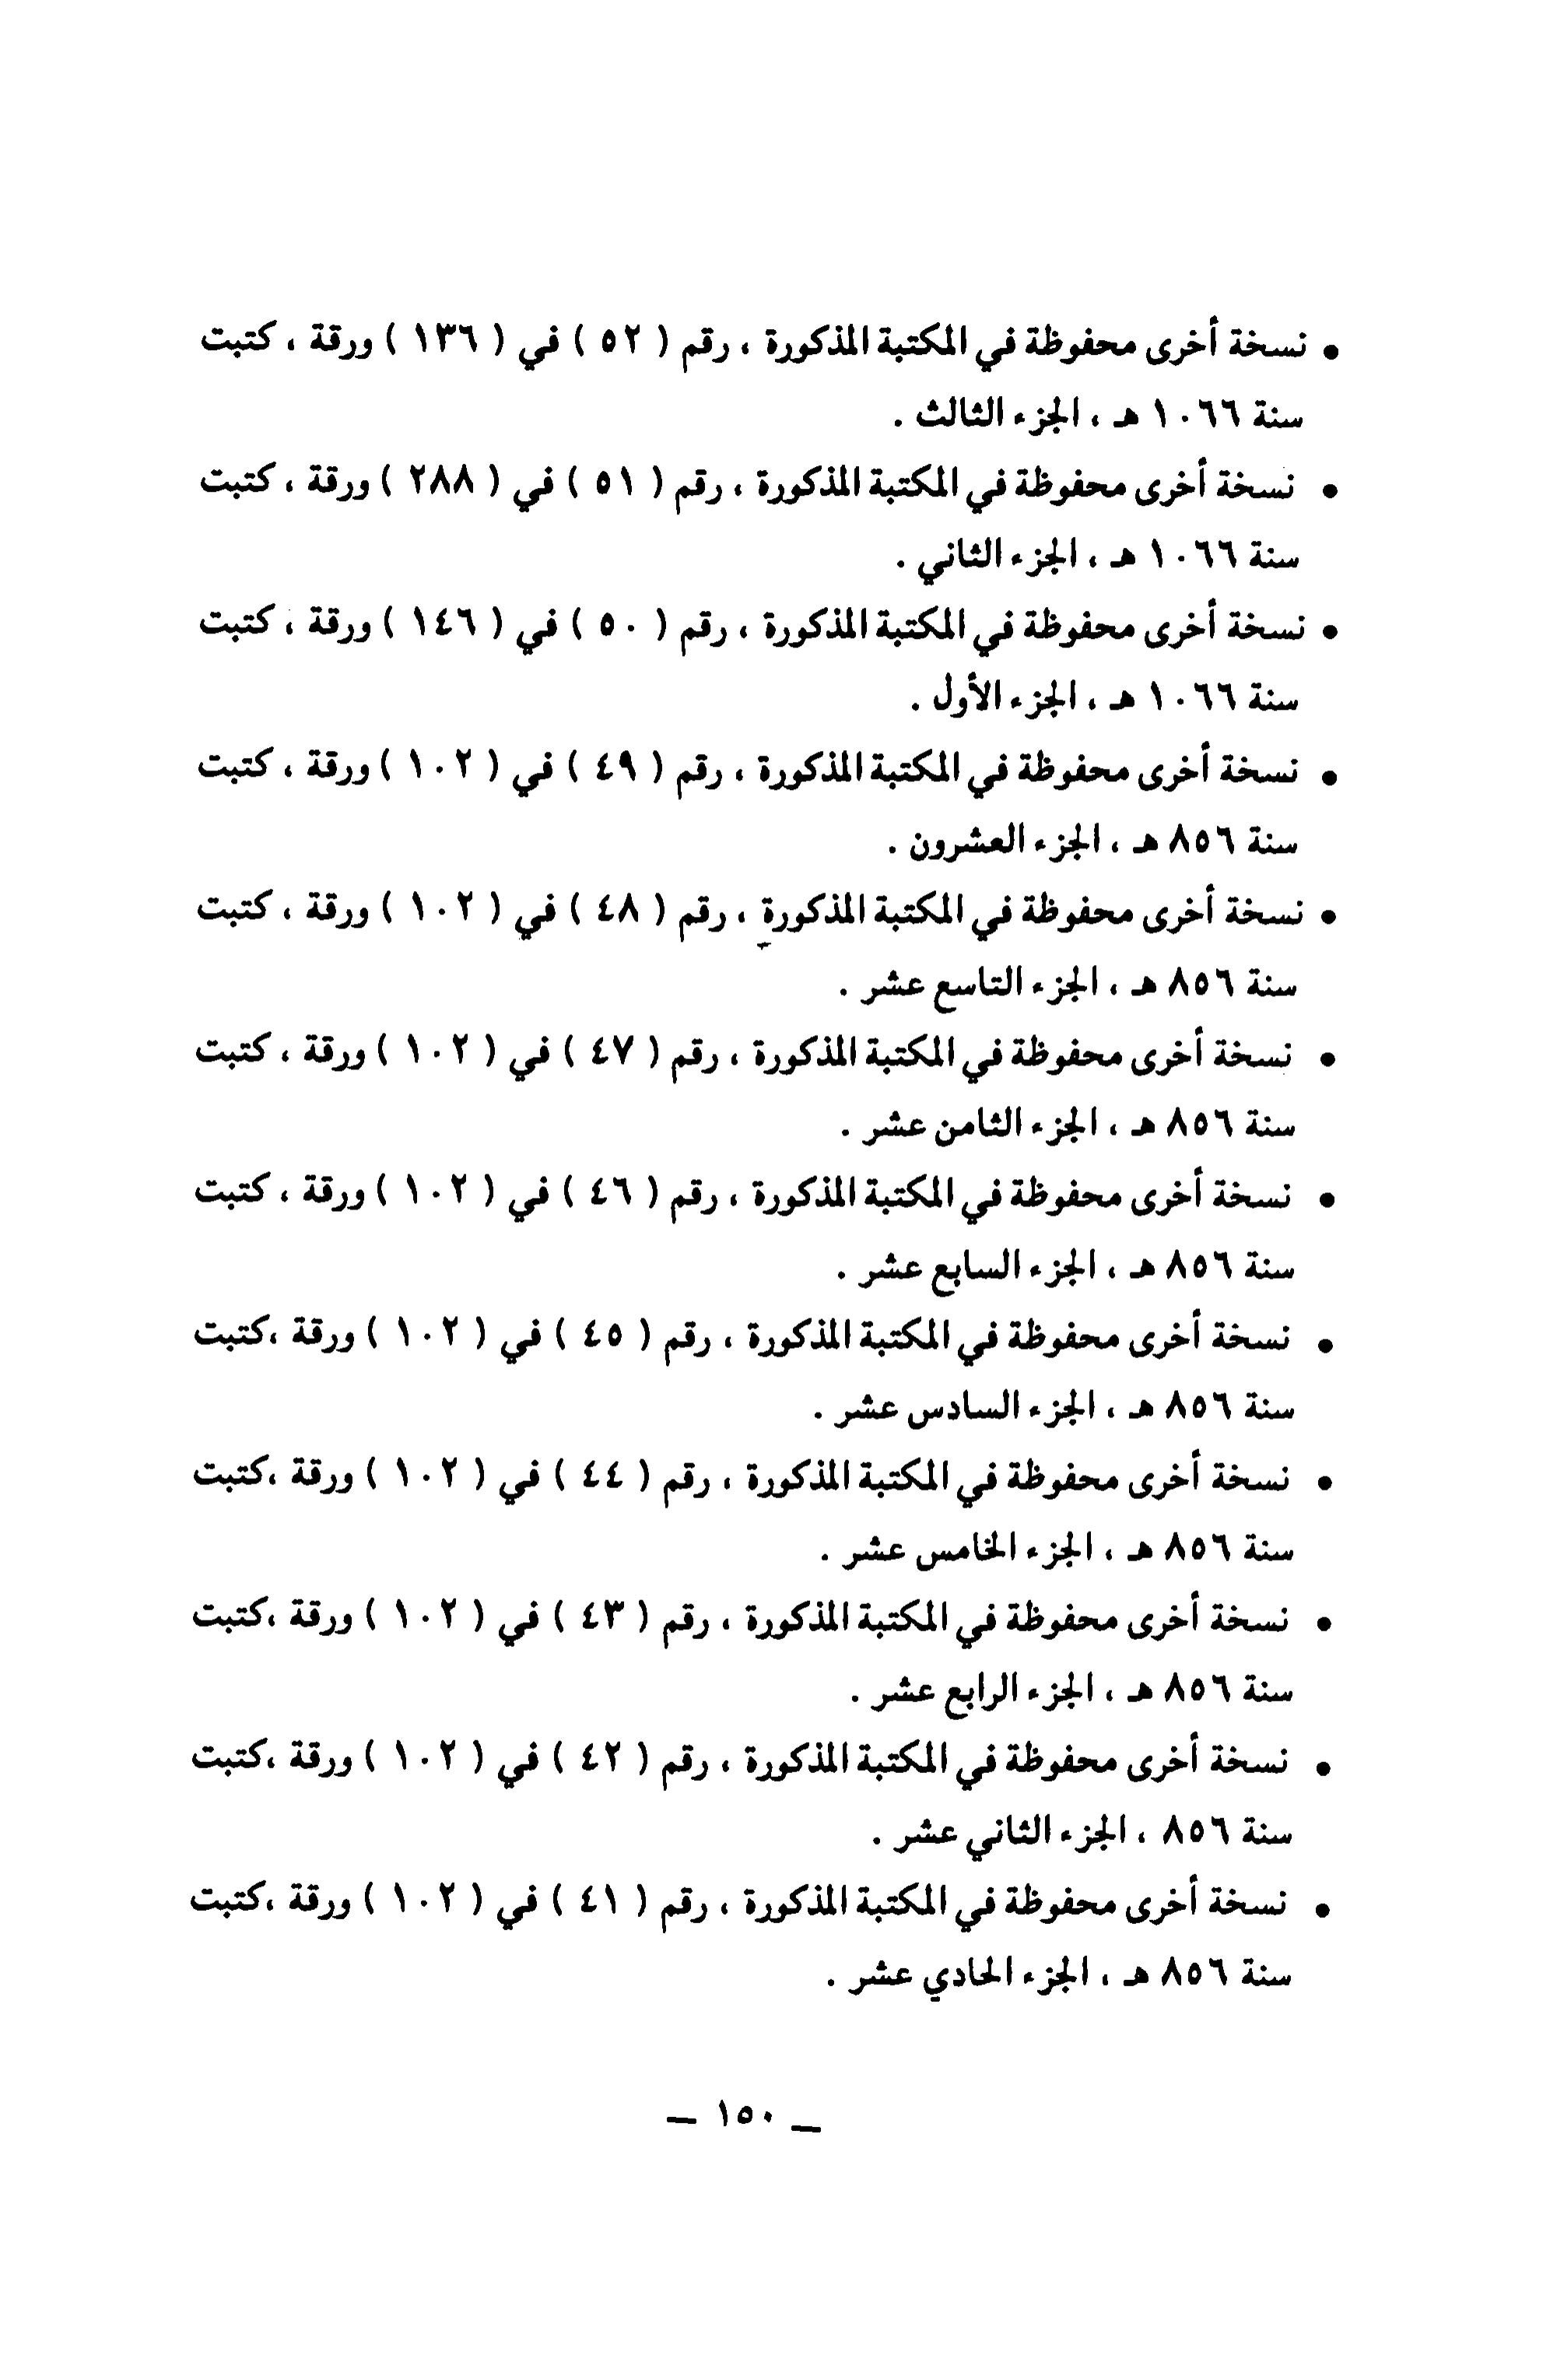 • نسخة أخرى محفوظة في المكتبة المذكورة ، رقم ( ٥٢ ) في ( ١٣٦ ) ورقة ، كتبت
سنة ١٠٦٦ هـ ، الجزء الثالث .
• نسخة أخرى محفوظة في المكتبة المذكورة ، رقم ( ٥١ ) في ( ٢٨٨ ) ورقة ، كتبت
سنة ١٠٦٦ هـ ، الجزء الثاني .
• نسخة أخرى محفوظة في المكتبة المذكورة ، رقم ( ٥٠ ) في ( ١٤٦ ) ورقة ، كتبت
سنة ١٠٦٦ هـ ، الجزء الأول .
• نسخة أخرى محفوظة في المكتبة المذكورة ، رقم ( ٤٩ ) في ( ١٠٢ ) ورقة ، كتبت
سنة ٨٥٦ هـ ، الجزء العشرون .
• نسخة أخرى محفوظة في المكتبة المذكورة ، رقم ( ٤٨ ) في ( ١٠٢ ) ورقة ، كتبت
سنة ٨٥٦ هـ ، الجزء التاسع عشر .
• نسخة أخرى محفوظة في المكتبة المذكورة ، رقم ( ٤٧ ) في ( ١٠٢ ) ورقة ، كتبت
سنة ٨٥٦ هـ ، الجزء الثامن عشر .
• نسخة أخرى محفوظة في المكتبة المذكورة ، رقم ( ٤٦ ) في ( ١٠٢ ) ورقة ، كتبت
سنة ٨٥٦ هـ ، الجزء السابع عشر .
• نسخة أخرى محفوظة في المكتبة المذكورة ، رقم ( ٤٥ ) في ( ١٠٢ ) ورقة ،كتبت
سنة ٨٥٦ هـ ، الجزء السادس عشر .
• نسخة أخرى محفوظة في المكتبة المذكورة ، رقم ( ٤٤ ) في ( ١٠٢ ) ورقة ،كتبت
سنة ٨٥٦ هـ ، الجزء الخامس عشر .
• نسخة أخرى محفوظة في المكتبة المذكورة ، رقم ( ٤٣ ) في ( ١٠٢ ) ورقة ،كتبت
سنة ٨٥٦ هـ ، الجزء الرابع عشر .
• نسخة أخرى محفوظة في المكتبة المذكورة ، رقم ( ٤٢ ) في ( ١٠٢ ) ورقة ،كتبت
سنة ٨٥٦ ، الجزء الثاني عشر .
• نسخة أخرى محفوظة في المكتبة المذكورة ، رقم ( ٤١ ) في ( ١٠٢ ) ورقة ،كتبت
سنة ٨٥٦ هـ ، الجزء الحادي عشر .
ـ ١٥٠ ـ